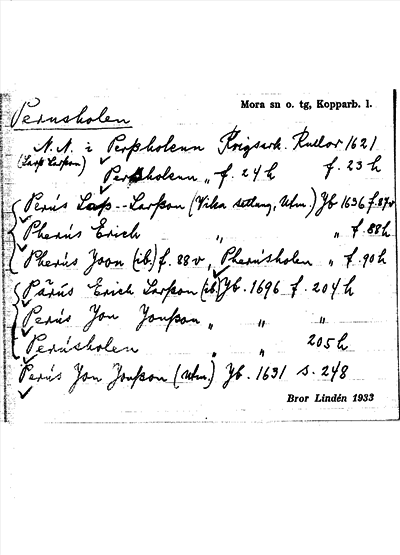 Mora sn o. tg, Kopparb. l.
Perusholen
N.N. i Perßholenn Krigsark. Rullor 1621
(Lasse Larsson) f. 23 h
Perßholenn „ f. 24 h
Perus Lass -- Larsson (Vika sotteng, Utm.) Jb 1636 f. 87v
Pherus Erich „ „ f. 88 h
Pherus Joon (ib.) f. 88 v, Pherusholen „ f. 90 h
Pärus Erich Larsson (ib) Jb. 1696 f. 204 h
Perus Jon Jonsson „ „ „
Perusholen „ „ 205 h
Perus Jon Jonsson (Utm.) Jb. 1631 s. 248
Bror Lindén 1933